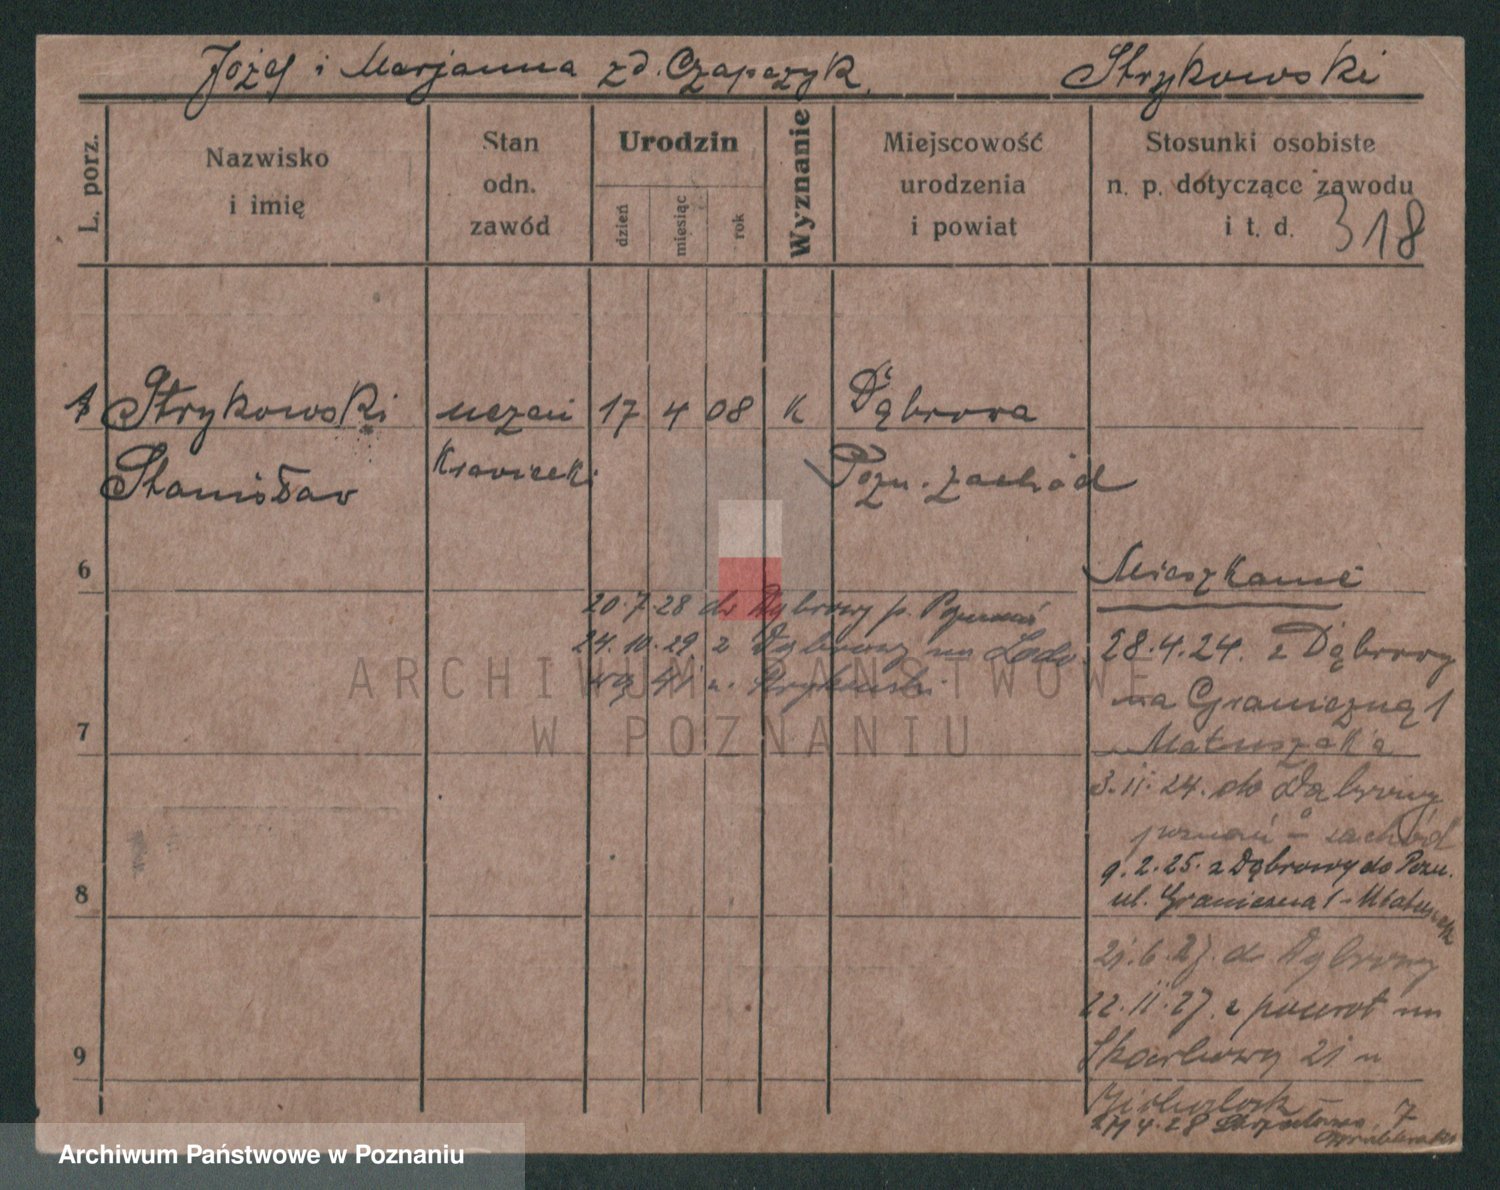 Józef i Marjanna zd. Czapczyk Strykowski
L. porz.
Nazwisko
i imię
Stan
odn.
zawód
Urodzin
dzień
miesiąc
rok
Wyznanie
Miejscowość
urodzenia
i powiat
Stosunki osobiste
n. p. dotyczące zawodu
i t. d.
318
Strykowski uczeń 17 4 08 K Dąbrowa
Stanisław Krawiecki Pozn. zachód
6
Mieszkanie
20.7.28 do Dąbrowy p. Poznań
24.10.29 z Dąbrowy na
41 u. Strykowski
28.4.24. z Dąbrowy
na Graniczną 1
Matuszaka
7
3.11.24. do Dąbrowy
poznań - zachód
9.2.25. z Dąbrowy do Pozn.
ul. Graniczna 1 - Matuszak
8
21.6.27. do Dąbrowy
22.11.27. z powrot na
Skarbowa 21 u
9
4.28
7
ARCHIWUM PAŃSTWOWE
W POZNANIU
Archiwum Państwowe w Poznaniu